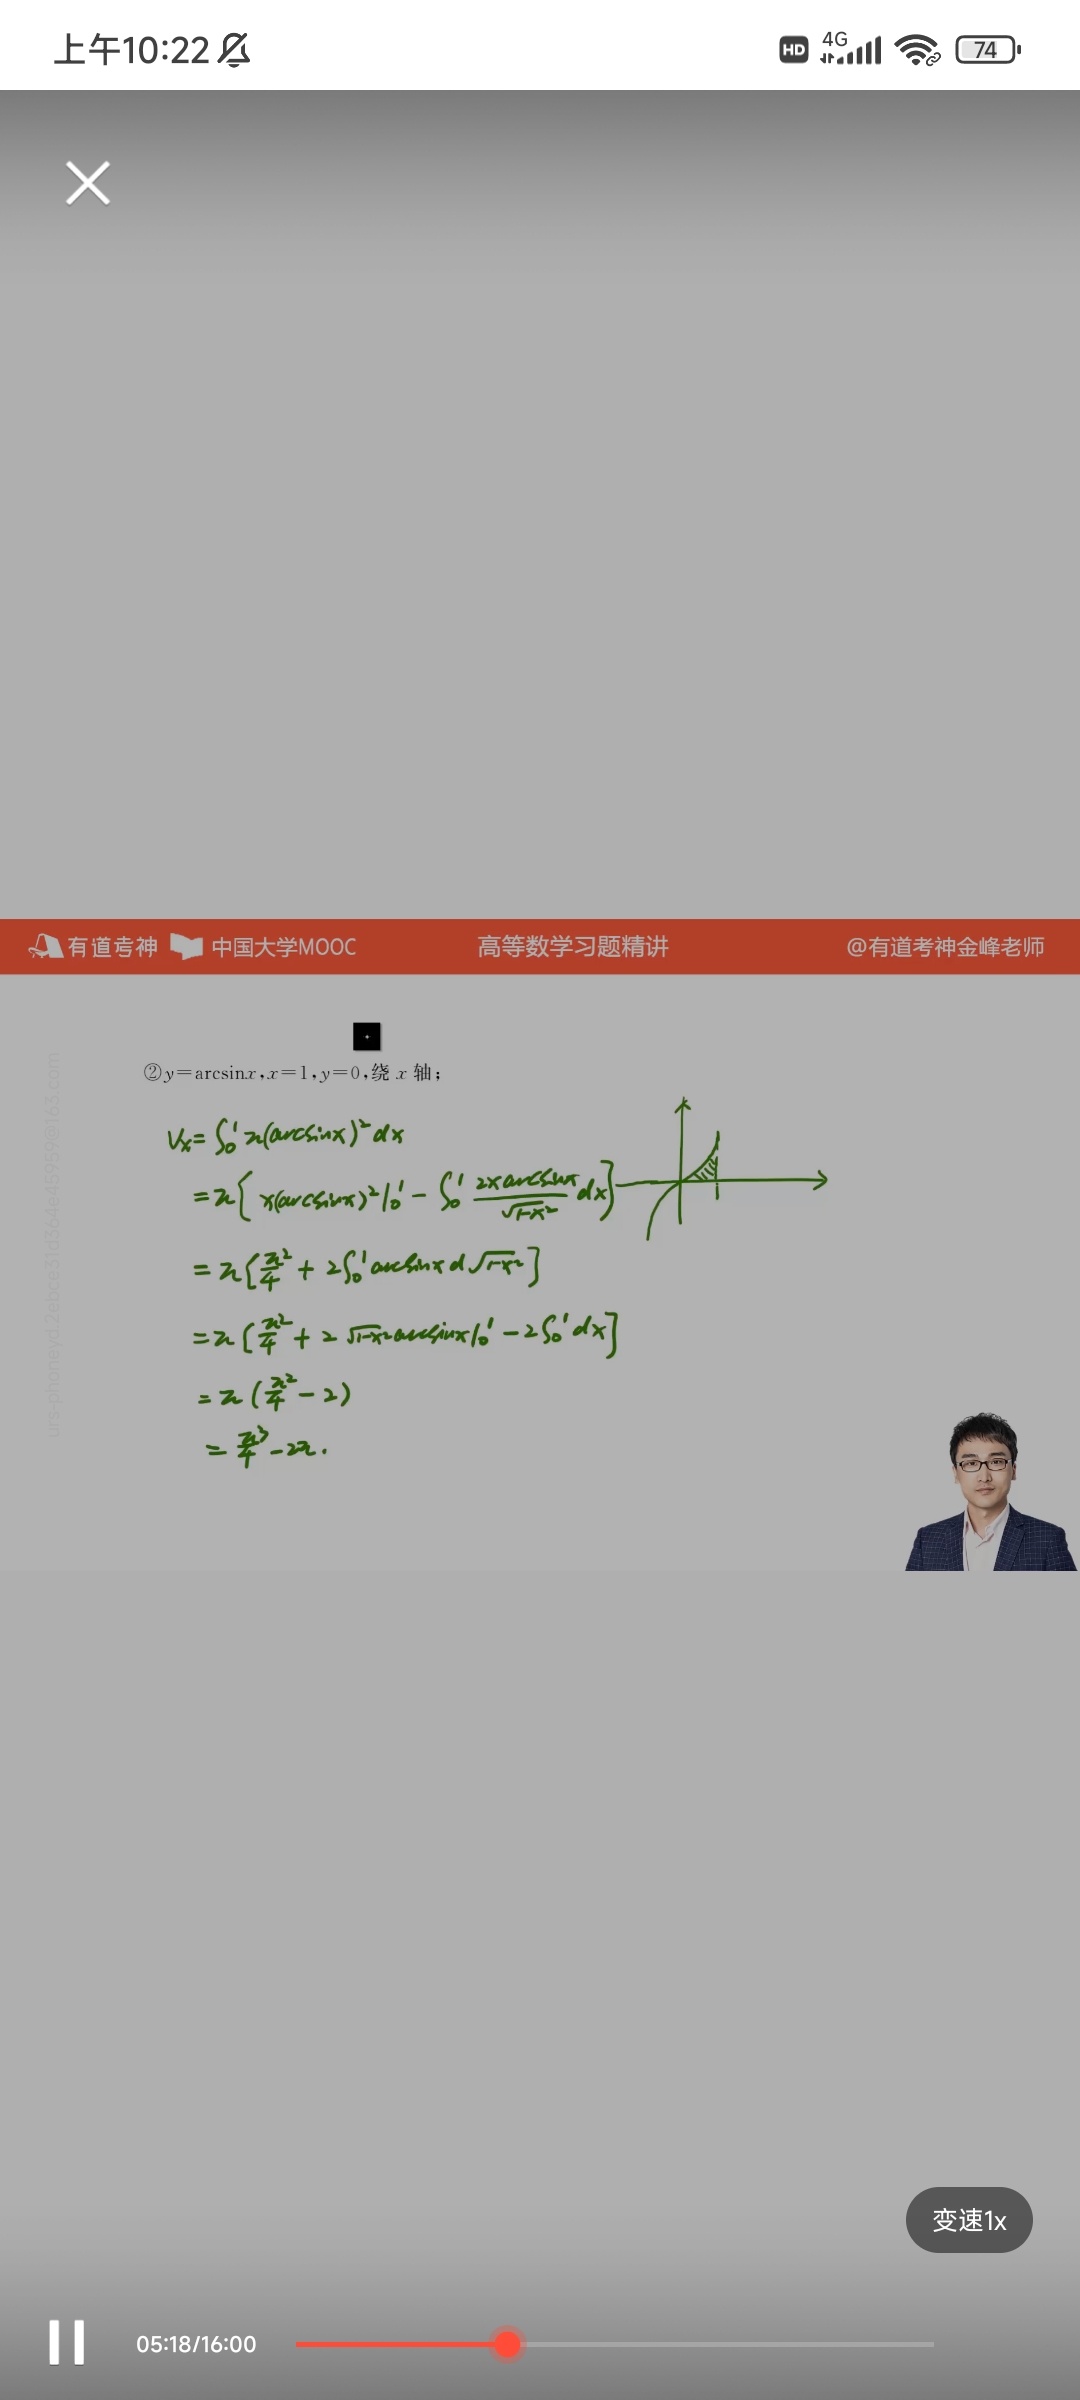 上午10:22 HD 4G 74
有道考神 中国大学MOOC 高等数学习题精讲 @有道考神金峰老师
②y=arcsinx,x=1,y=0,绕 x 轴;
Vx=∫₀¹π(arcsinx)²dx
=π[x(arcsinx)²|₀¹-∫₀¹ 2xarcsinx/√1-x² dx]
=π[π²/4+2∫₀¹arcsinxd√1-x²]
=π[π²/4+2√1-x²arcsinx|₀¹-2∫₀¹dx]
=π(π²/4-2)
=π³/4-2π.
变速1x
05:18/16:00